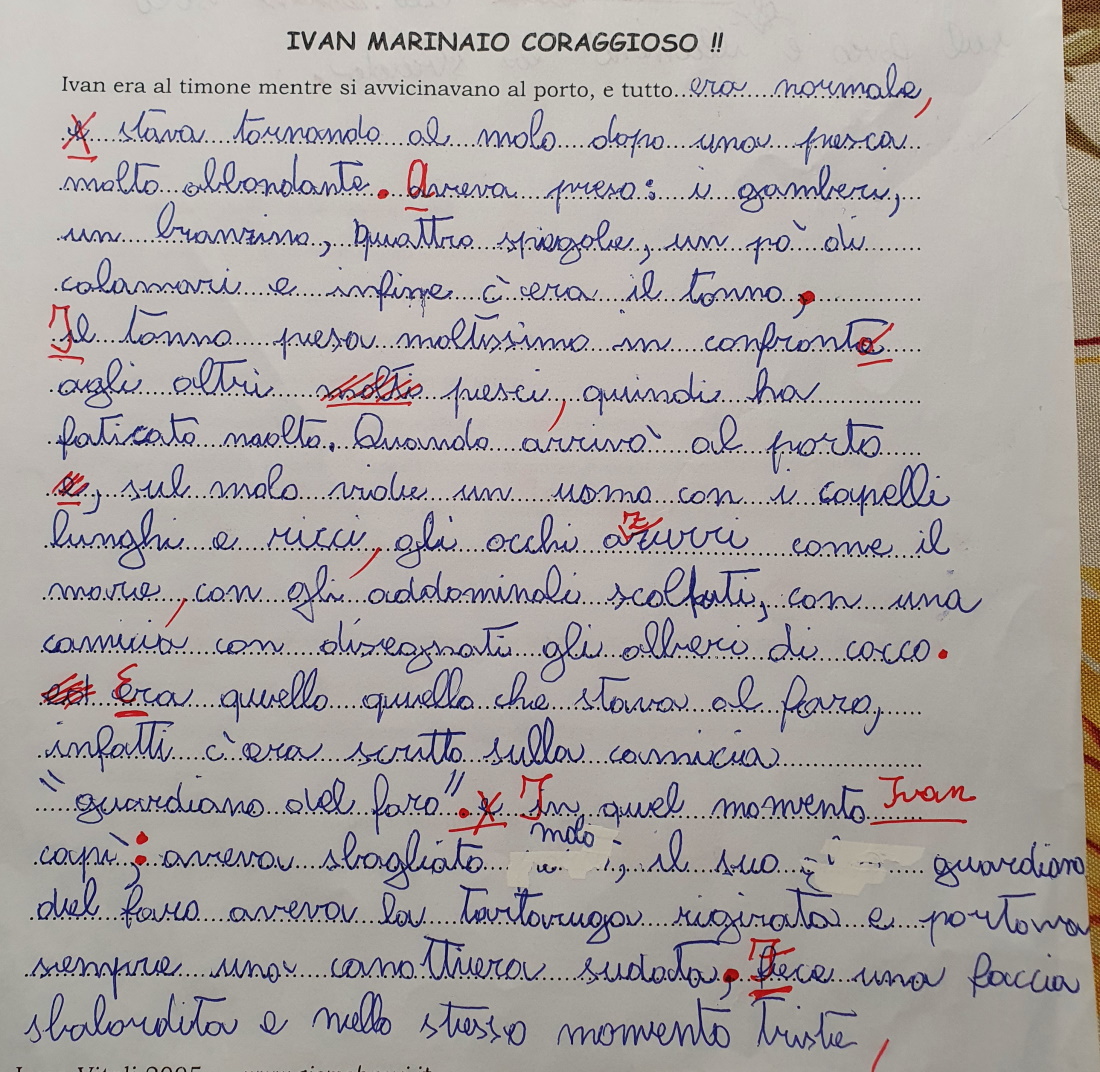 IVAN MARINAIO CORAGGIOSO !!
Ivan era al timone mentre si avvicinavano al porto, e tutto era normale,
e stava tornando al molo dopo una pesca
molto abbondante. Aveva preso: i gamberi,
un branzino, quattro spigole, un po' di
calamari e infine c'era il tonno.
Il tonno pesa moltissimo in confronto
agli altri molto pesci, quindi ha
faticato molto. Quando arrivò al porto
e, sul molo vide un uomo con i capelli
lunghi e ricci, gli occhi azzurri come il
mare, con gli addominali scolpiti, con una
camicia con disegnati gli alberi di cocco.
Era quello quello che stava al faro,
infatti c'era scritto sulla camicia
"guardiano del faro". e In quel momento Ivan
capì: aveva sbagliato molo, il suo guardiano
del faro aveva la tartaruga rigirata e portava
sempre una canottiera sudata. Fece una faccia
sbalordita e nello stesso momento triste,